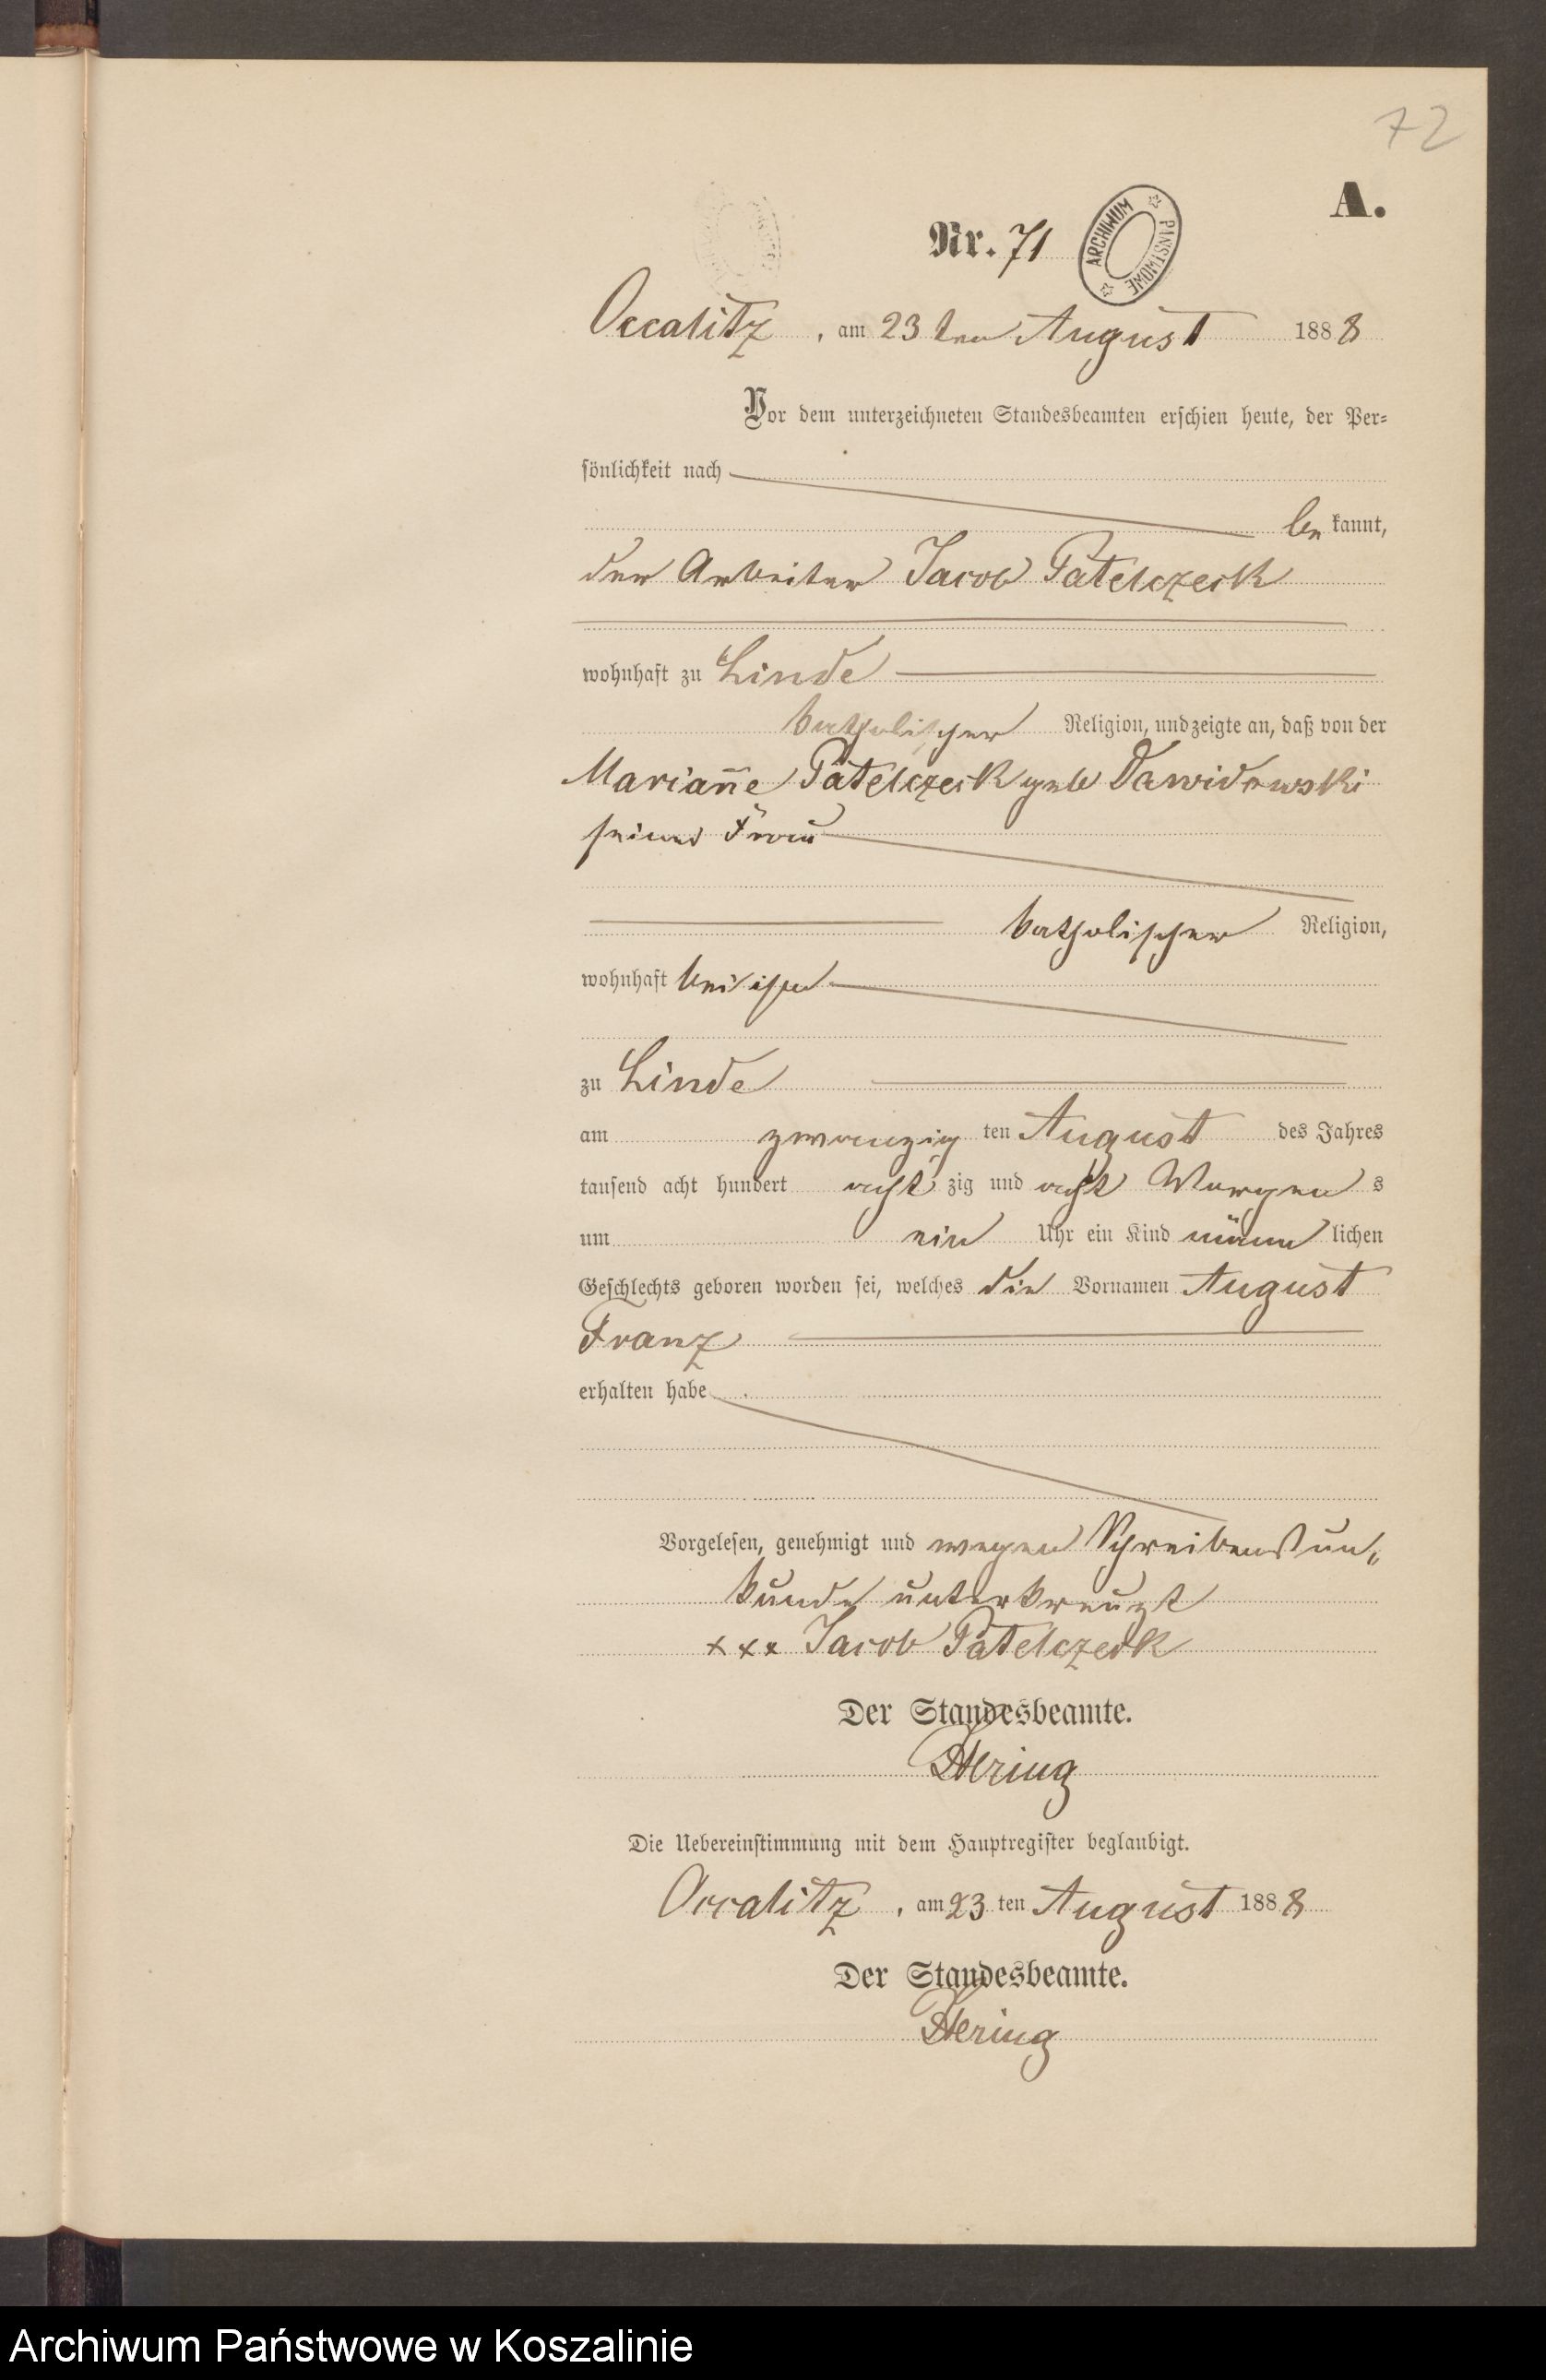 72
A.
Nr. 71
ARCHIWUM PAŃSTWOWE
Occalitz, am 23 ten August 1888
Vor dem unterzeichneten Standesbeamten erschien heute, der Per=
sönlichkeit nach
be kannt,
der Arbeiter Jacob Patelczeck
wohnhaft zu Linde
katholischer Religion, und zeigte an, daß von der
Marian̄e Patelczeck geb Dawidowski
seiner Frau
katholischer Religion,
wohnhaft bei ihm
zu Linde
am zwanzig ten August des Jahres
tausend acht hundert acht zig und acht Morgen s
um ein Uhr ein Kind männ lichen
Geschlechts geboren worden sei, welches die Vornamen August
Franz
erhalten habe
Vorgelesen, genehmigt und wegen Schreibensun„
kunde unterkreuzt
xxx Jacob Patelczeck
Der Standesbeamte.
Hering
Die Uebereinstimmung mit dem Hauptregister beglaubigt.
Occalitz, am 23 ten August 1888
Der Standesbeamte.
Hering
Archiwum Państwowe w Koszalinie